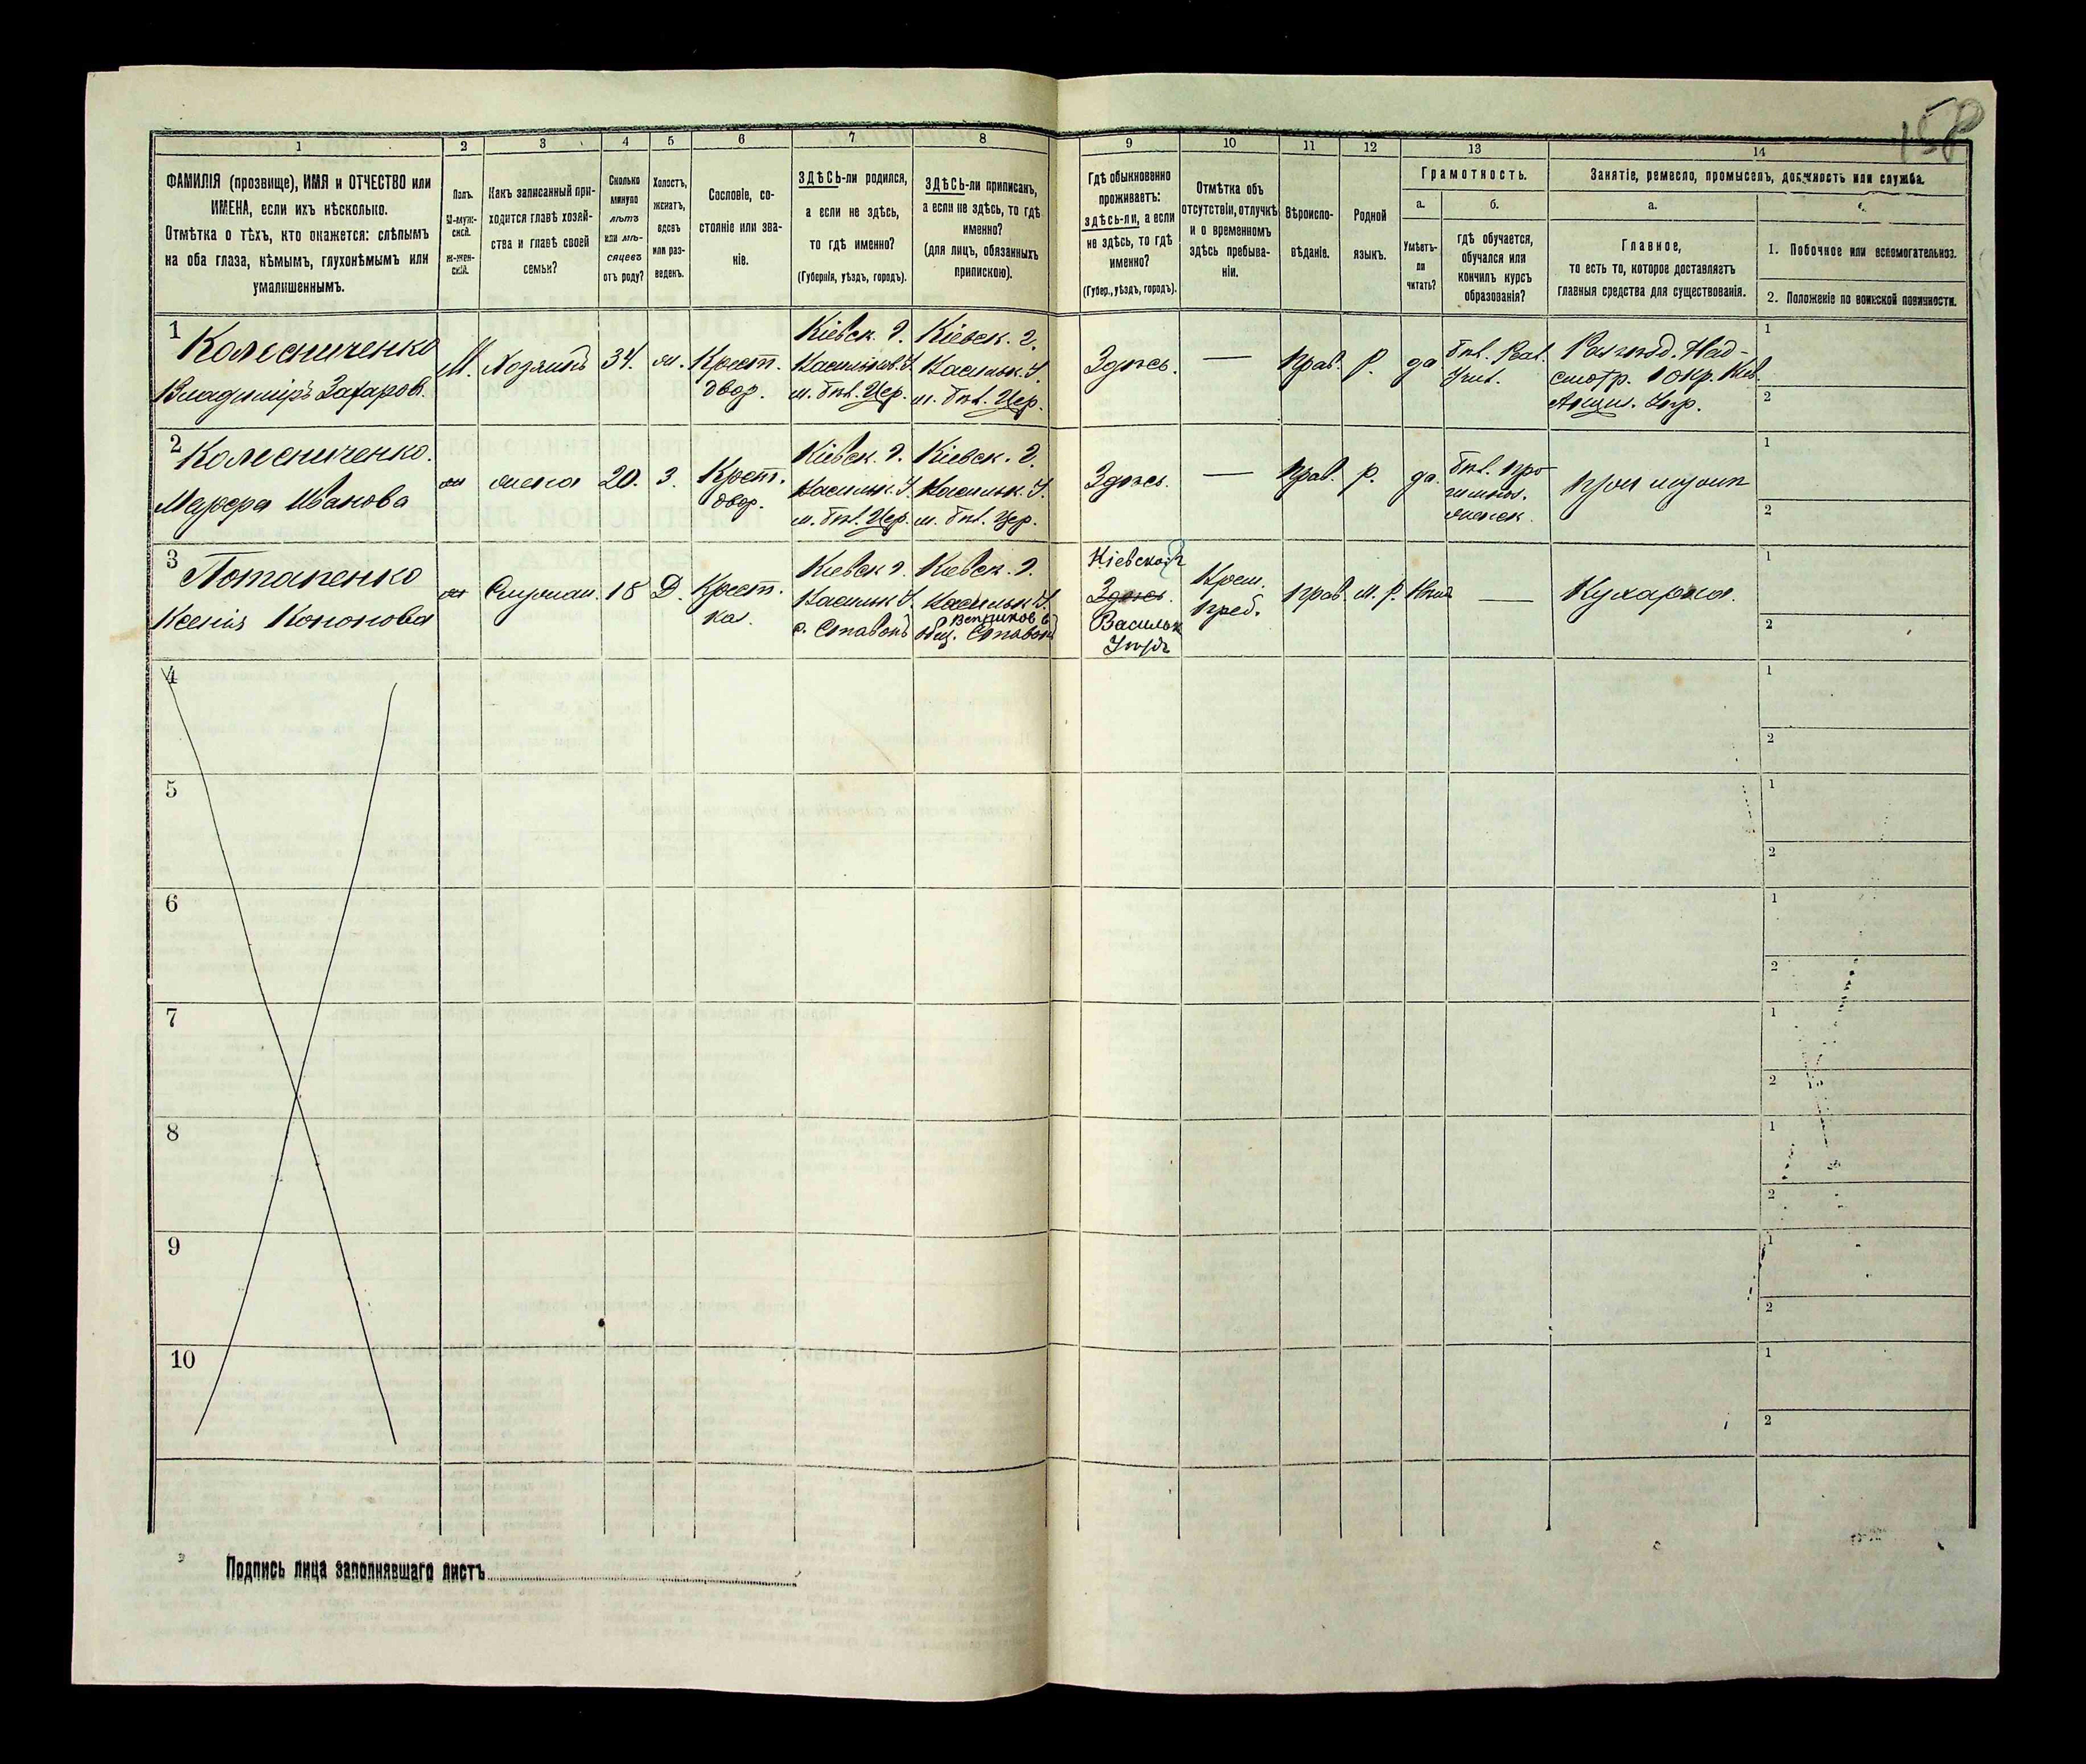 158
1 2 3 4 5 6 7 8 9 10 11 12 13 14
ФАМИЛІЯ (прозвище), ИМЯ и ОТЧЕСТВО или
ИМЕНА, если ихъ нѣсколько.
Отмѣтка о тѣхъ, кто окажется: слѣпымъ
на оба глаза, нѣмымъ, глухонѣмымъ или
умалишеннымъ.
Полъ.
М-муж-
ской.
Ж-жен-
скій.
Какъ записанный при-
ходится главѣ хозяй-
ства и главѣ своей
семьи?
Сколько
минуло
лѣтъ
или мѣ-
сяцевъ
отъ роду?
Холостъ,
женатъ,
вдовъ
или раз-
веденъ.
Сословіе, со-
стояніе или зва-
ніе.
ЗДѢСЬ-ли родился,
а если не здѣсь,
то гдѣ именно?
(Губернія, уѣздъ, городъ).
ЗДѢСЬ-ли приписанъ,
а если не здѣсь, то гдѣ
именно?
(для лицъ, обязанныхъ
припискою).
Гдѣ обыкновенно
проживаетъ:
здѣсь-ли, а если
не здѣсь, то гдѣ
именно?
(Губер., уѣздъ, городъ).
Отмѣтка объ
отсутствіи, отлучкѣ
и о временномъ
здѣсь пребыва-
ніи.
Вѣроиспо-
вѣданіе.
Родной
языкъ.
Грамотность.
а.
Умѣетъ-
ли
читать?
б.
гдѣ обучается,
обучался или
кончилъ курсъ
образованія?
Занятіе, ремесло, промыселъ, должность или служба.
а.
Главное,
то есть то, которое доставляетъ
главныя средства для существованія.
1. Побочное или вспомогательное.
2. Положеніе по воинской повинности.
1
Колесниченко
Владиміръ Захаров.
М.
Хозяинъ
34.
ж.
Крест.
двор.
Кіевск. г.
Васильков. У.
м. Бѣл. Цер.
Кіевск. г.
Васильк. У.
м. Бѣл. Цер.
Здѣсь.
—
Прав.
Р.
да
Бѣл.
Учил.
смотр. 1 окр. Кіев.
Акциз. Упр.
1
2
2
Колесниченко.
Иванова
ж
жена
20.
З.
Крест.
двор.
Кіевск. г.
Васильк. У.
м. Бѣл. Цер.
Кіевск. г.
Васильк. У.
м. Бѣл. Цер.
Здѣсь.
—
Прав.
р.
да.
Бѣл. Про-
гимназ.
женск.
при мужѣ
1
2
3
Потапенко
Ксенія Кононова
ж
Служан.
18
Д.
Крест.
ка.
Кіевск г.
Васильк У.
с. Ставовъ
Кіевск. г.
Васильк У.
общ. Ставовъ
Кіевской г
Здѣсь.
Васильк
Уѣздъ
Врем.
преб.
Прав.
м. р.
Нѣтъ
—
Кухарка.
1
2
4
1
2
5
1
2
6
1
2
7
1
2
8
1
2
9
1
2
10
1
2
Подпись лица заполнявшаго листъ